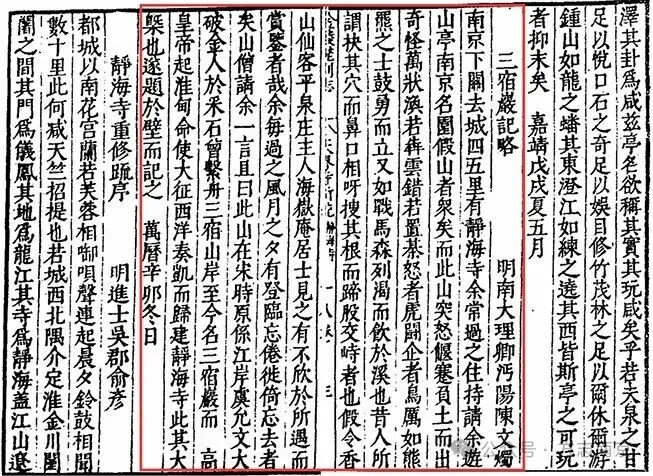 澤其卦爲咸兹亭名欲稱其實其玩咸矣乎若夫泉之甘
足以悅口石之奇足以娛目修竹茂林之足以爾休爾游
鍾山如龍之蟠其東澄江如練之遶其西皆斯亭之可玩
者抑末矣 嘉靖戊戌夏五月
三宿巖記略 明南大理卿沔陽陳文燭
南京下關去城四五里有靜海寺余常過之住持請余遊
山亭南京名園假山者衆矣而此山突怒偃蹇負土而出
奇怪萬狀渙若犇雲錯若置棊怒者虎闘企者鳥厲如熊
羆之士鼓勇而立又如戰馬森列渴而飲於溪也昔人所
謂抉其穴而鼻口相呀搜其根而蹄股交峙者也假令香
山仙客平泉庄主人海嶽庵居士見之有不欣於所遇而
賞鑒者哉余每過之風月之夕有登臨忘倦徙倚忘去者
矣山僧請余一言且曰此山在宋時原係江岸虞允文大
破金人於釆石曾繫舟三宿山岸至今名三宿巖而 高
皇帝起淮甸命使大征西洋奏凱而歸建靜海寺此其大
槩也遂題於壁而記之 萬曆辛卯冬日
靜海寺重修疏亭 明進士吳郡俞彦
都城以南花宮蘭若芙蓉相啣唄聲連起晨夕鈴鼓相聞
數十里此何减天竺招提也若城西北隅介定淮金川閶
闔之間其門爲儀鳳其地爲龍江其寺爲靜海盖江山遼